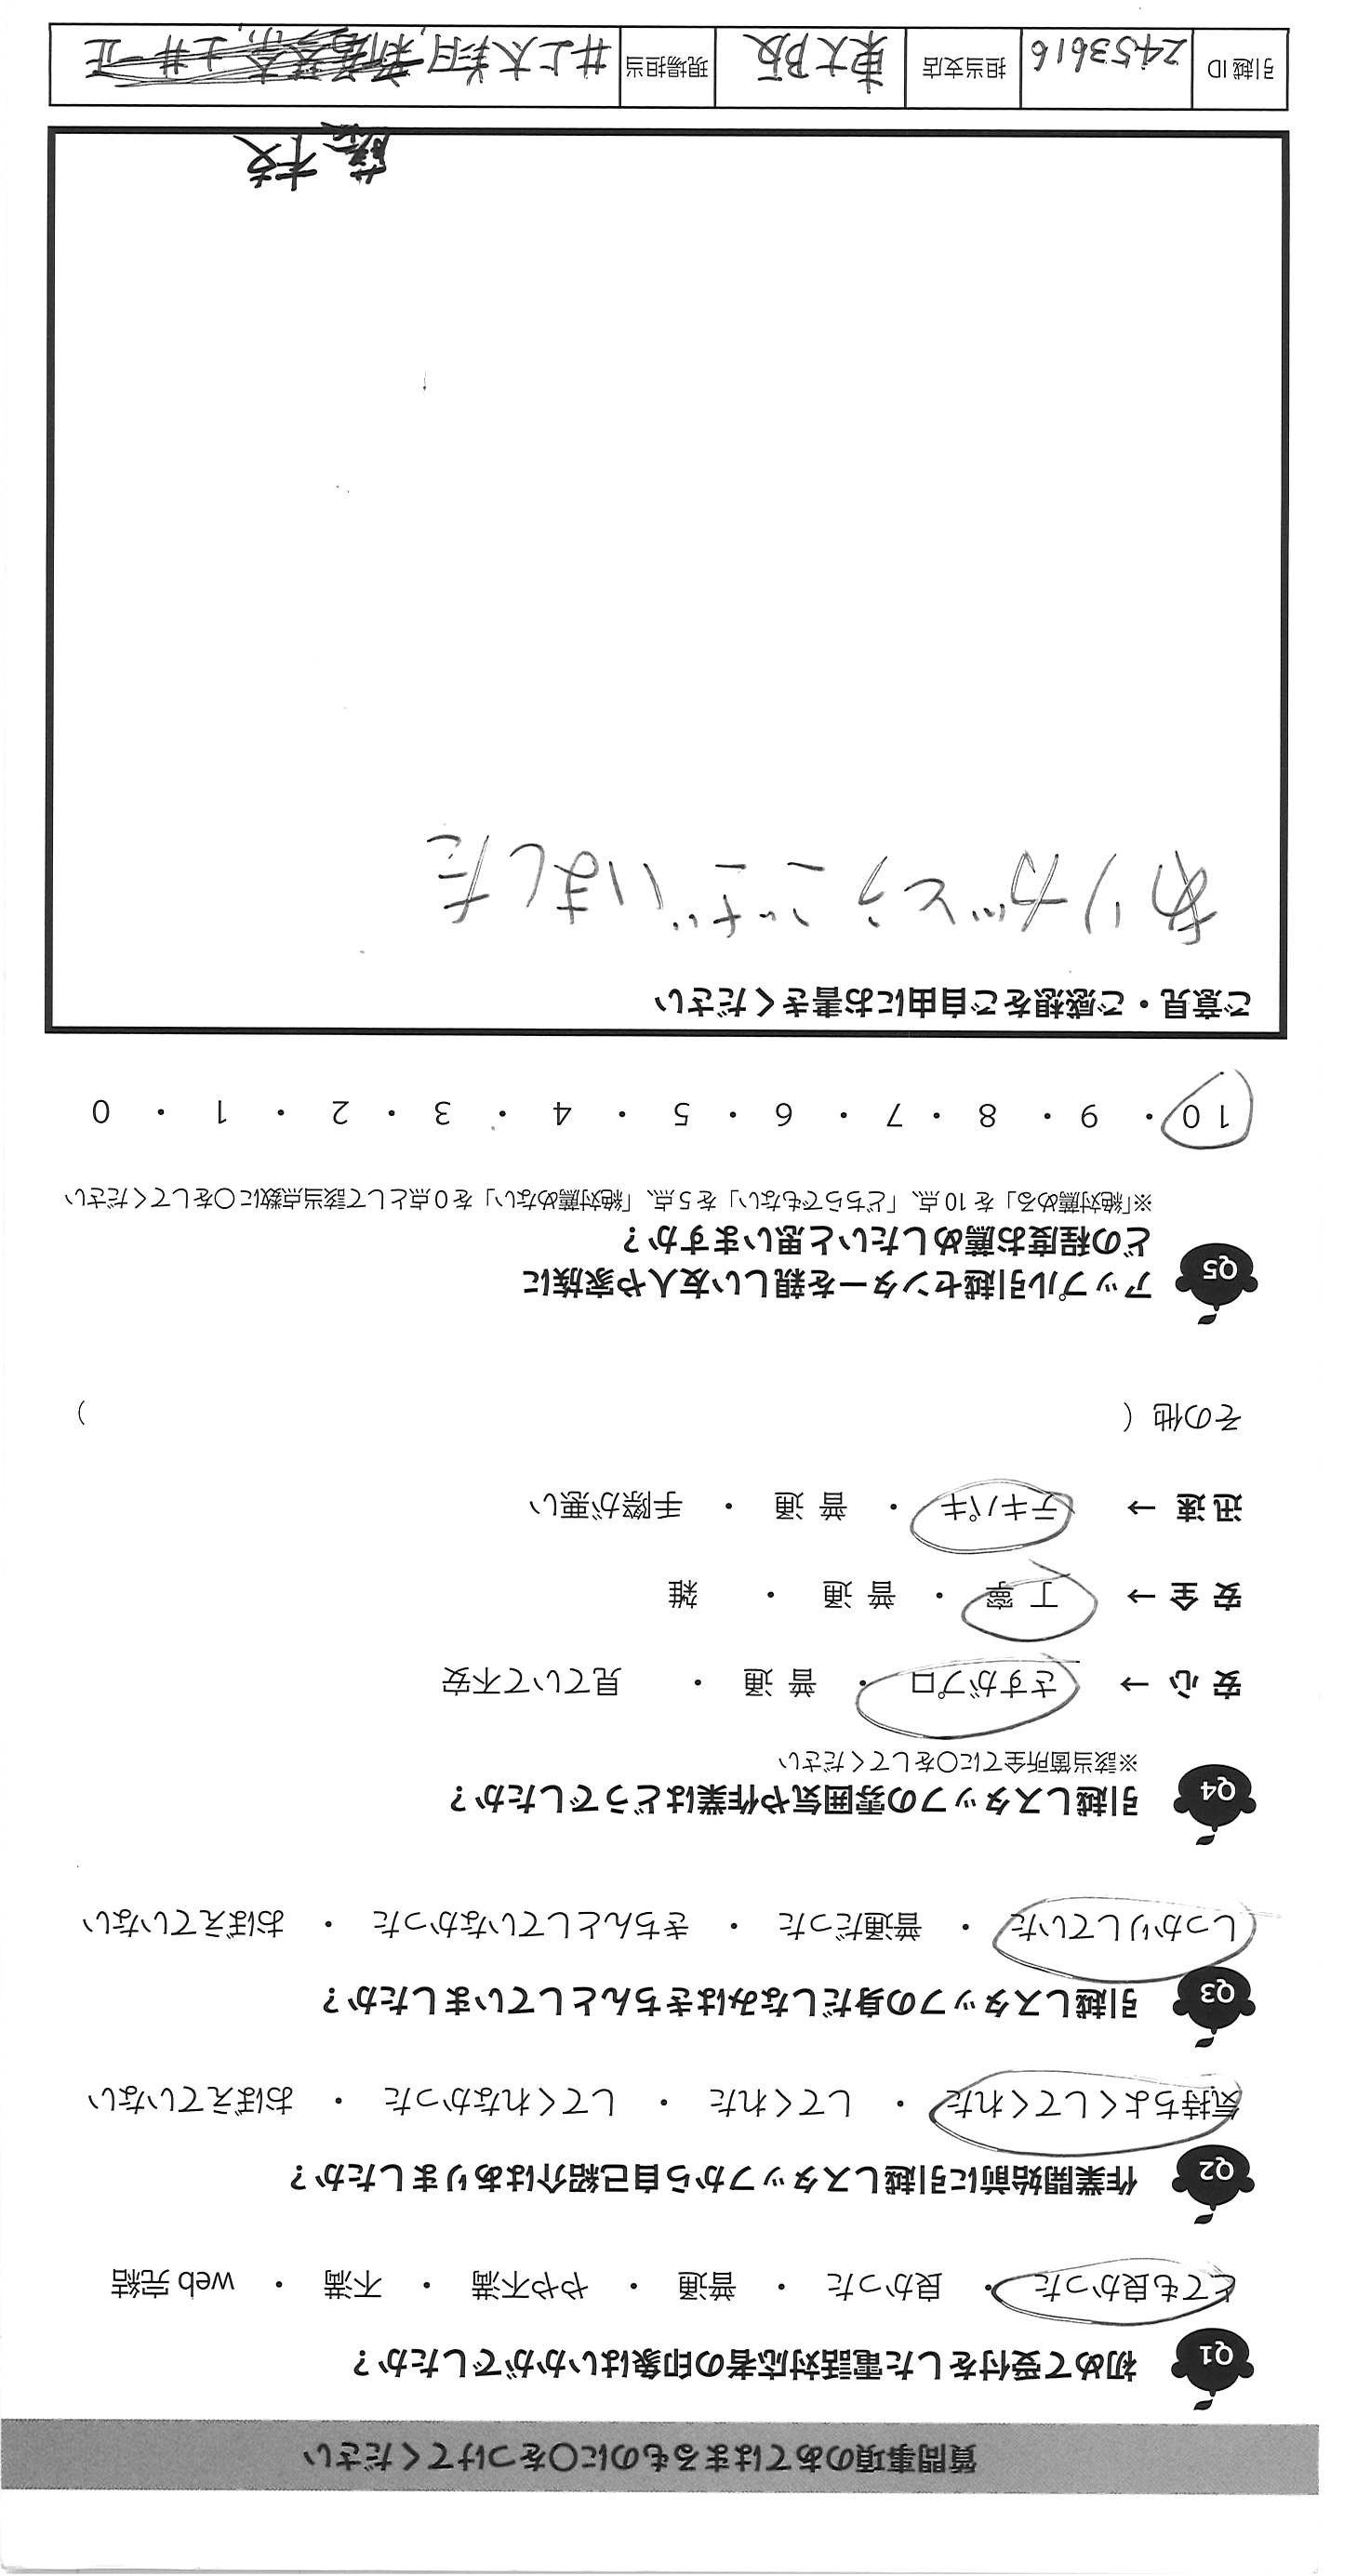 質問事項のあてはまるものに○をつけてください
Q1 初めて受付をした電話対応者の印象はいかがでしたか?
とても良かった ・ 良かった ・ 普通 ・ やや不満 ・ 不満 ・ web 完結
Q2 作業開始前に引越しスタッフから自己紹介はありましたか?
気持ちよくしてくれた ・ してくれた ・ してくれなかった ・ おぼえていない
Q3 引越しスタッフの身だしなみはきちんとしていましたか?
しっかりしていた ・ 普通だった ・ きちんとしていなかった ・ おぼえていない
Q4 引越しスタッフの雰囲気や作業はどうでしたか?
※該当箇所全てに○をしてください
安 心 → さすがプロ ・ 普 通 ・ 見ていて不安
安 全 → 丁 寧 ・ 普 通 ・ 雑
迅 速 → テキパキ ・ 普 通 ・ 手際が悪い
その他 ( )
Q5 アップル引越センターを親しい友人や家族に
どの程度お薦めしたいと思いますか?
※「絶対薦める」を 10 点、「どちらでもない」を 5 点、「絶対薦めない」を 0 点として該当点数に○をしてください
10 ・ 9 ・ 8 ・ 7 ・ 6 ・ 5 ・ 4 ・ 3 ・ 2 ・ 1 ・ 0
ご意見・ご感想をご自由にお書きください
ありがとうございました
藤枝
引越 ID 2453616 担当支店 東大阪 現場担当 井上大翔